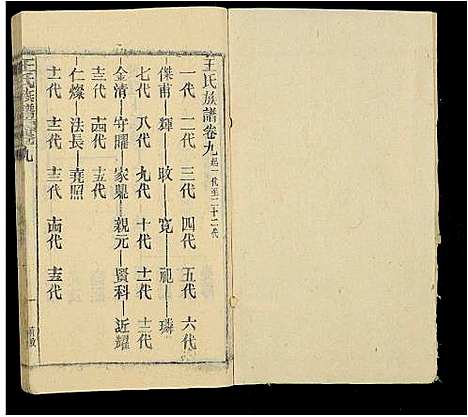 王氏族譜卷九 起一代至二十二代
一代 二代 三代 四代 五代 六代
傑甫 輝 敢 寬 祀 璘
七代 八代 九代 十代 十一代 十二代
金清 守曜 家鼎 親元 賢科 近耀
十三代 十四代 十五代
仁燦 法長 堯照
十一代 十二代 十三代 十四代 十五代
王氏族譜 卷九
一